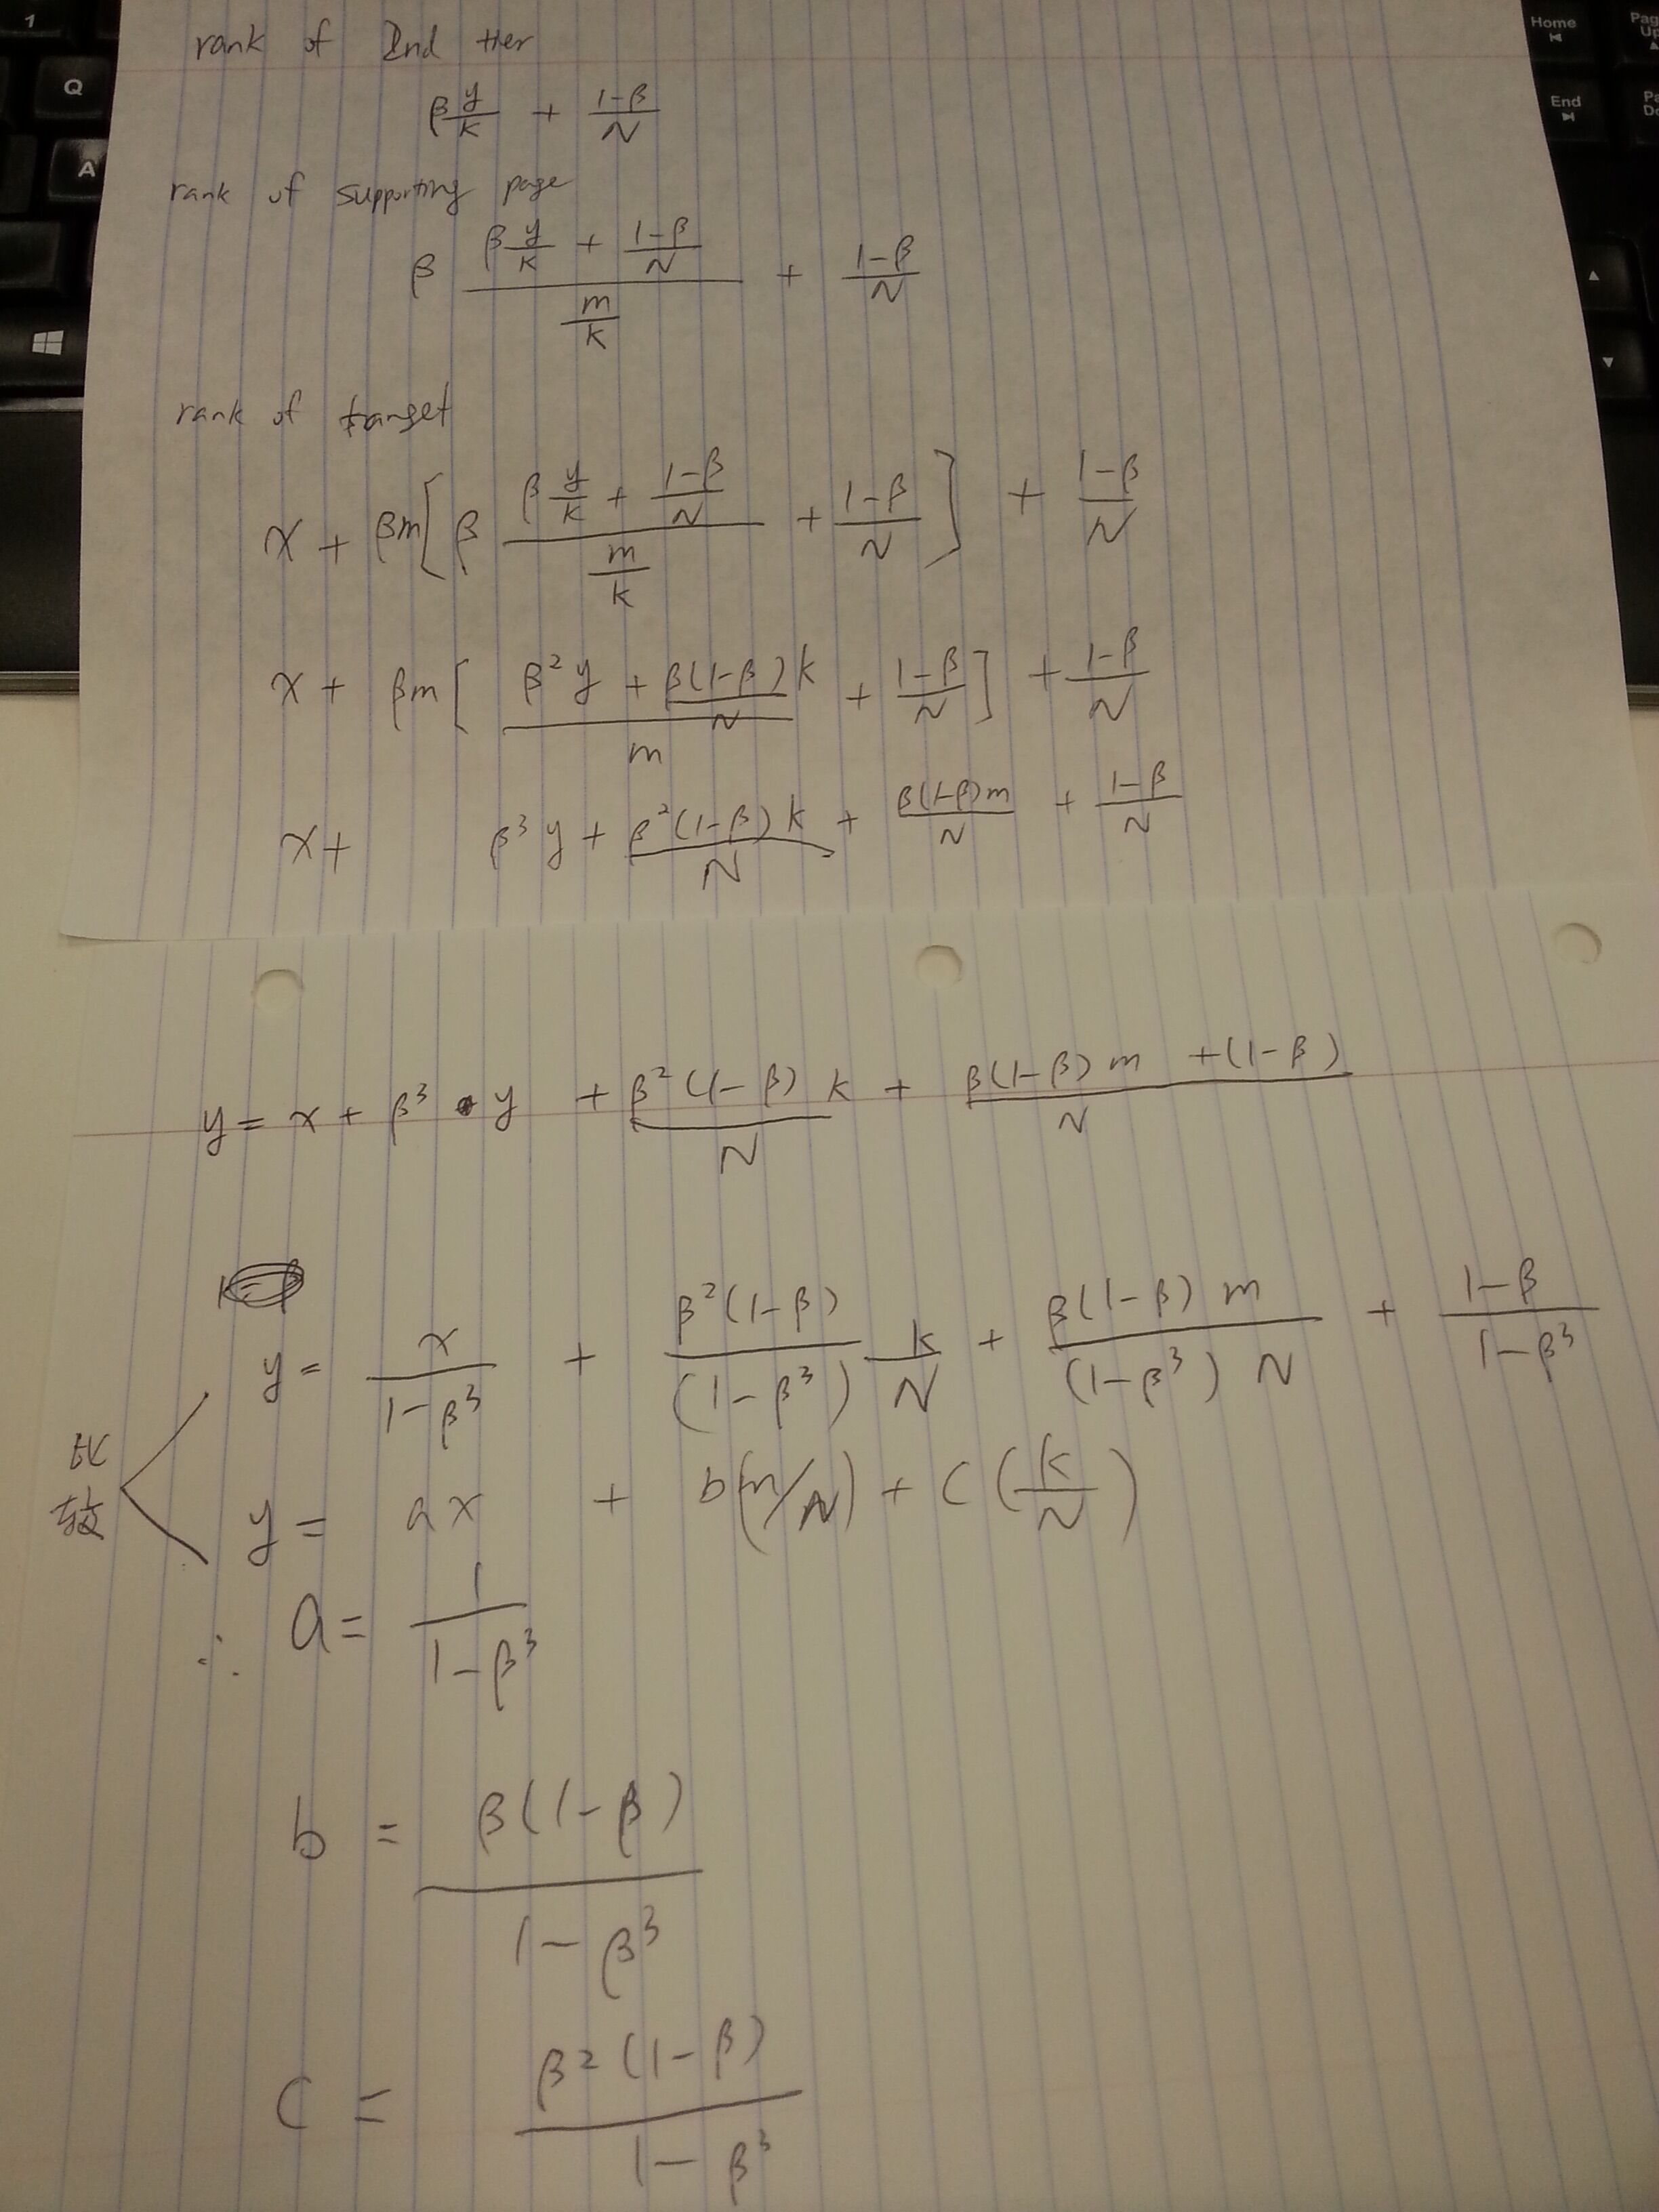 1
Q
A
Home
End
rank of 2nd tier
β y/k + (1-β)/N
rank of supporting page
β (β y/k + (1-β)/N)/(m/k) + (1-β)/N
rank of target
x + βm[β (β y/k + (1-β)/N)/(m/k) + (1-β)/N] + (1-β)/N
x + βm[(β²y + β(1-β)/N k)/m + (1-β)/N] + (1-β)/N
x + β³y + β²(1-β)k/N + β(1-β)m/N + (1-β)/N
y = x + β³ • y + β²(1-β)k/N + (β(1-β)m + (1-β))/N
y = x/(1-β³) + β²(1-β)/(1-β³) k/N + β(1-β)m/((1-β³)N) + (1-β)/(1-β³)
比
较
y = ax + b(m/N) + c(k/N)
∴ a = 1/(1-β³)
b = β(1-β)/(1-β³)
c = β²(1-β)/(1-β³)